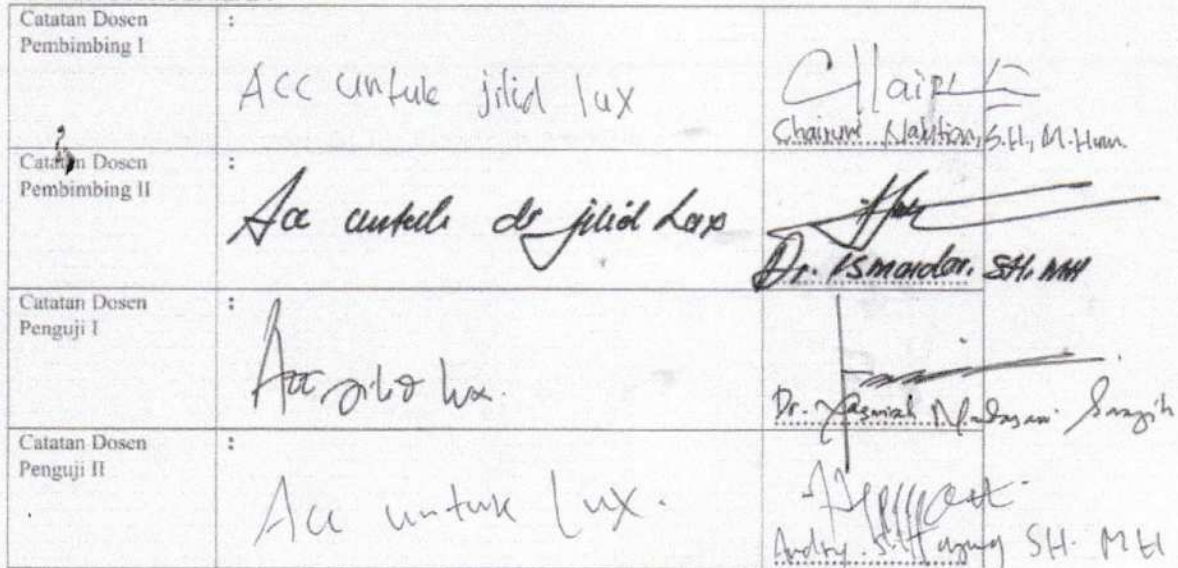 Catatan Dosen :
Pembimbing I
Acc untuk jilid lux
Chairuni Nasution, S.H., M.Hum.
Catatan Dosen :
Pembimbing II
Acc untuk di jilid Lux
Dr. Ismaidar. SH. MH
Catatan Dosen :
Penguji I
Acc jilid lux.
Dr.
Catatan Dosen :
Penguji II
Acc untuk lux.
Andry SH. MH